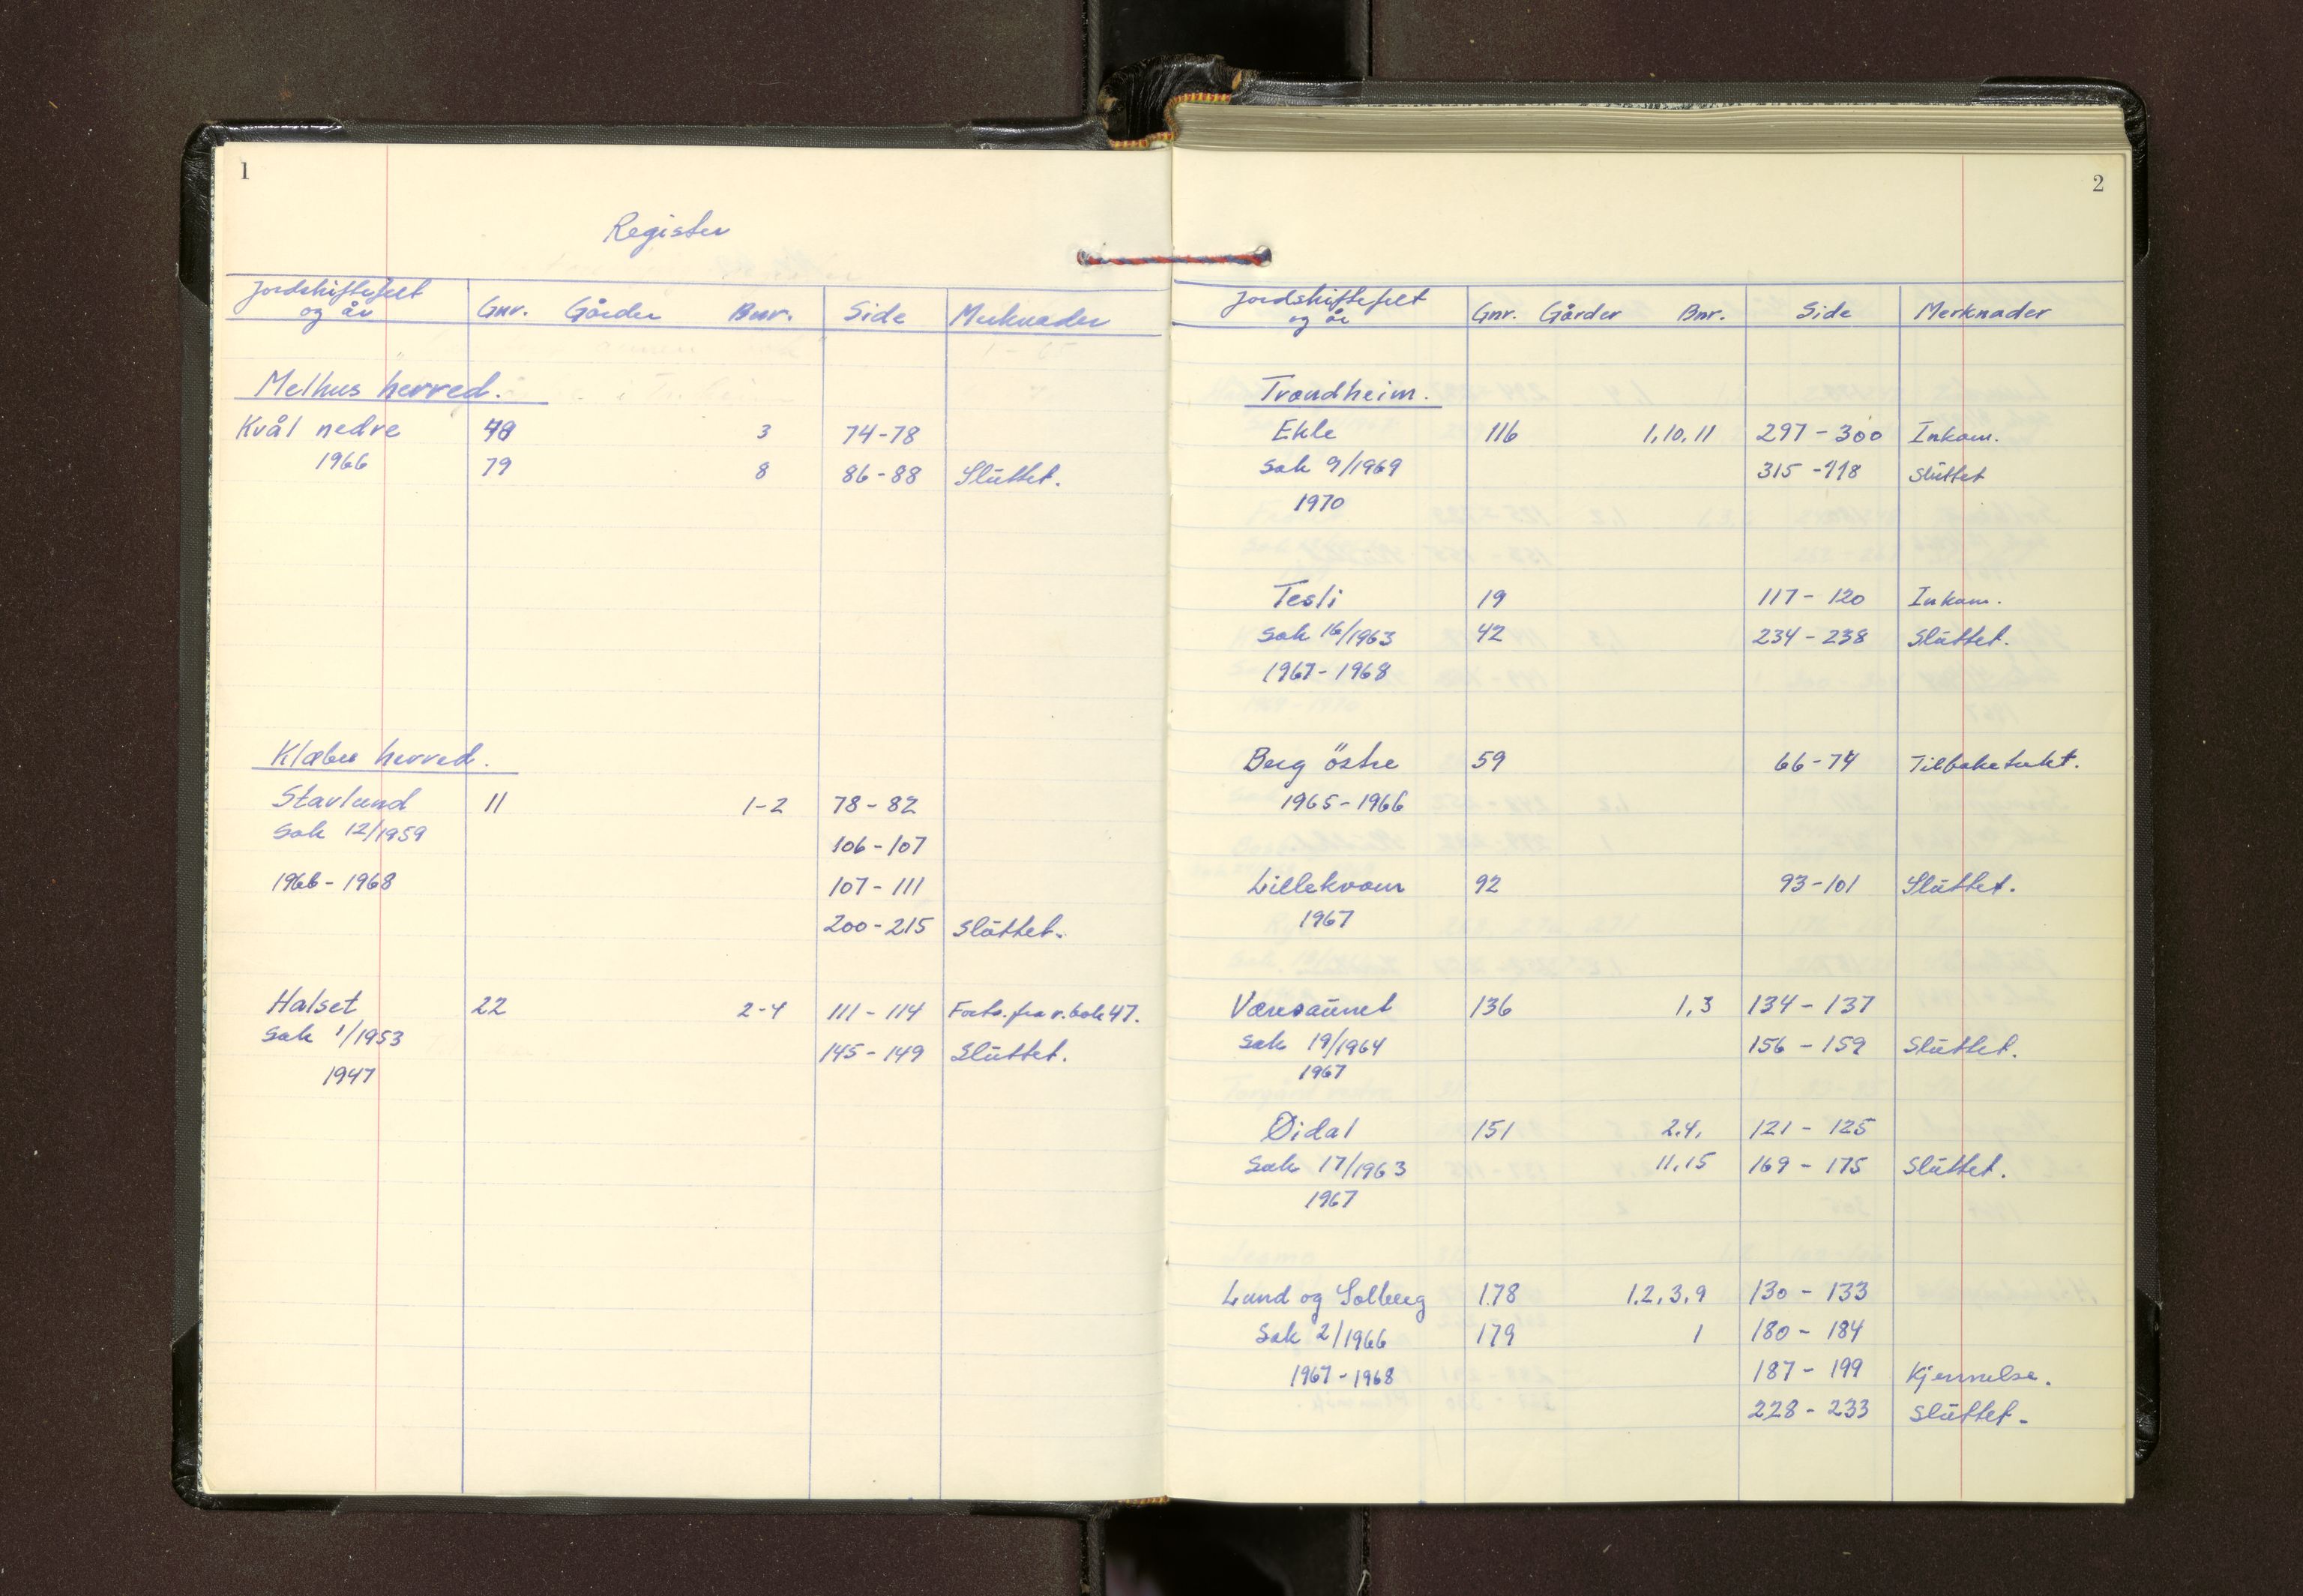 1
Register
Jordskiftefelt og år Gnr. Gårder Bnr. Side Merknader
Melhus herred.
Kvål nedre 3 74-78
1966 79 8 86-88 Sluttet.
Klæbu herred.
Stavlund 11 1-2 78-82
Sak 12/1959 106-107
1966-1968 107-111
200-215 Sluttet.
Halset 22 2-4 111-114 Forts. fra r.bok 47.
Sak 1/1953 145-149 Sluttet.
1947
2
Jordskiftefelt og år Gnr. Gårder Bnr. Side Merknader
Trondheim.
Ekle 116 1,10,11 297-300 Inkom.
Sak 9/1969 315- Sluttet
1970
Tesli 19 117-120 Inkom.
Sak 16/1963 42 234-238 Sluttet.
1967-1968
Berg östre 59 66-74 Tilbaketrukt.
1965-1966
Lillekvam 92 93-101 Sluttet.
1967
Væresaunet 136 1,3 134-137
Sak 19/1964 156-159 Sluttet.
1967
Øidal 151 2,4, 121-125
Sak 17/1963 11,15 169-175 Sluttet.
1967
Lund og Solberg 178 1,2,3,9 130-133
Sak 2/1966 179 1 180-184
1967-1968 187-199 Kjennelse.
228-233 Sluttet.